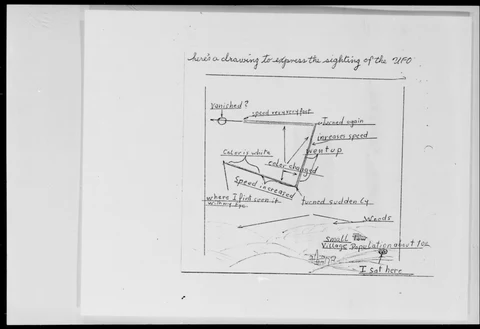 here's a drawing to express the sighting of the UFO
Vanished?
speed very very fast
Turned again
increases speed
went up
Color is white
color changed
Speed increased
where I first seen it
with my eye
turned suddenly
Woods
small town
Village Population about 700
I sat here